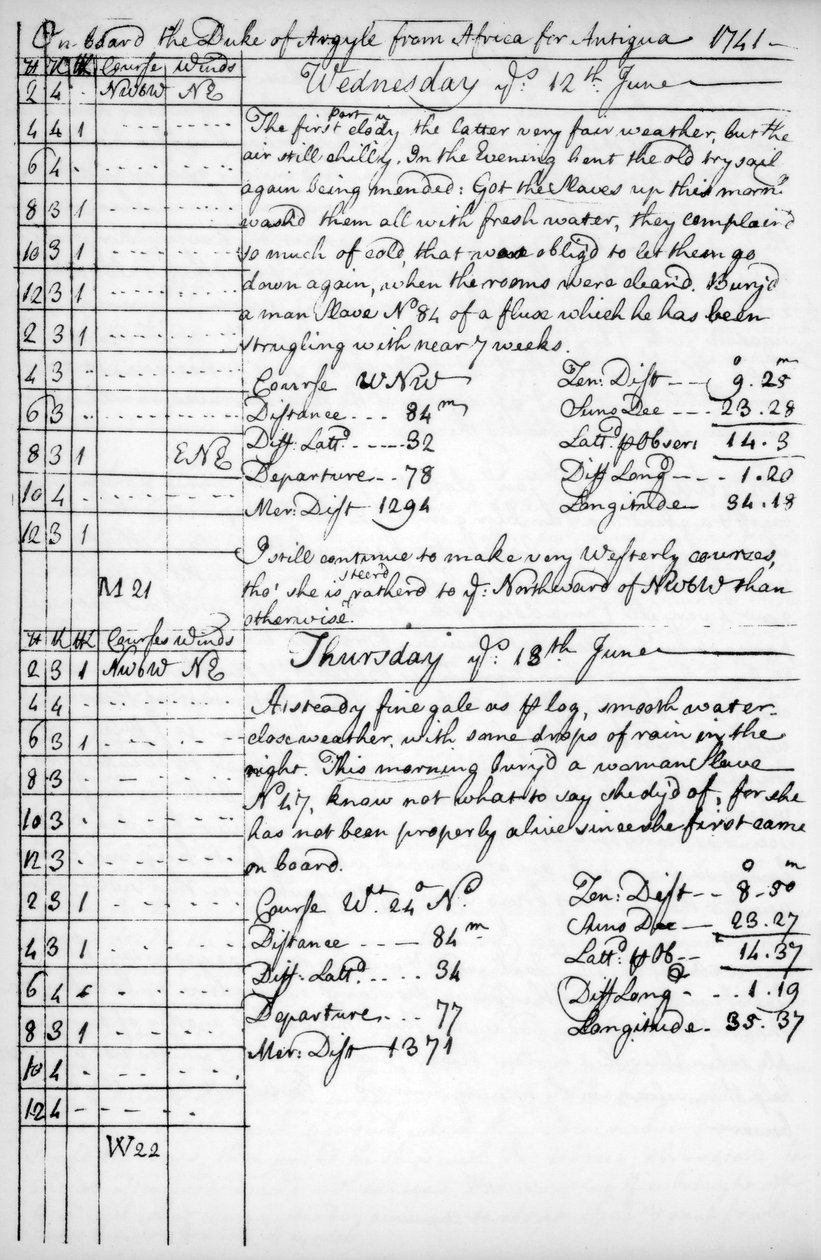 On board the Duke of Argyle from Africa for Antigua 1741
H K HK Course Winds
Wednesday ye: 12th June
2 4 NWbW NE
4 4 1
6 4
8 3 1
10 3 1
12 3 1
2 3 1
4 3
6 3
8 3 1 ENE
10 4
12 3 1
M 21
The first part clody the latter very fair weather, but the
air still chilly. In the Evening bent the old try sail
again being mended: Got the Slaves up this morn:
washd them all with fresh water, they complain'd
so much of cold, that was oblig'd to let them go
down again, when the rooms were cleand. Bury'd
a man Slave No 84 of a flux which he has been
strugling with near 7 weeks.
Course WNW Zen: Dist 9.25
Distance 84m Suns Dec 23.28
Diff: Lattd 32 Lattd ⅌ Obser: 14.3
Departure 78 Diff Longd 1.20
Mer: Dist 1294 Longitude 34.18
I still continue to make very Westerly courses,
tho' she is steerd ratherd to ye: Northward of NWbW than
otherwise.
H K HK Courses Winds
Thursday ye: 13th June
2 3 1 NWbW NE
4 4
6 3 1
8 3
10 3
12 3
2 3 1
4 3 1
6 4
8 3 1
10 4
12 4
W 22
A steady fine gale as ⅌ log, smooth water
close weather, with some drops of rain in the
night. This morning bury'd a woman Slave
No 47, know not what to say she dy'd of, for she
has not been properly alive since she first came
on board.
Course Wt. 24o Nd Zen: Dist 8.50
Distance 84m Suns Dec 23.27
Diff: Lattd 34 Lattd ⅌ Ob 14.37
Departure 77 Diff Longd 1.19
Mer: Dist 1371 Longitude 35.37